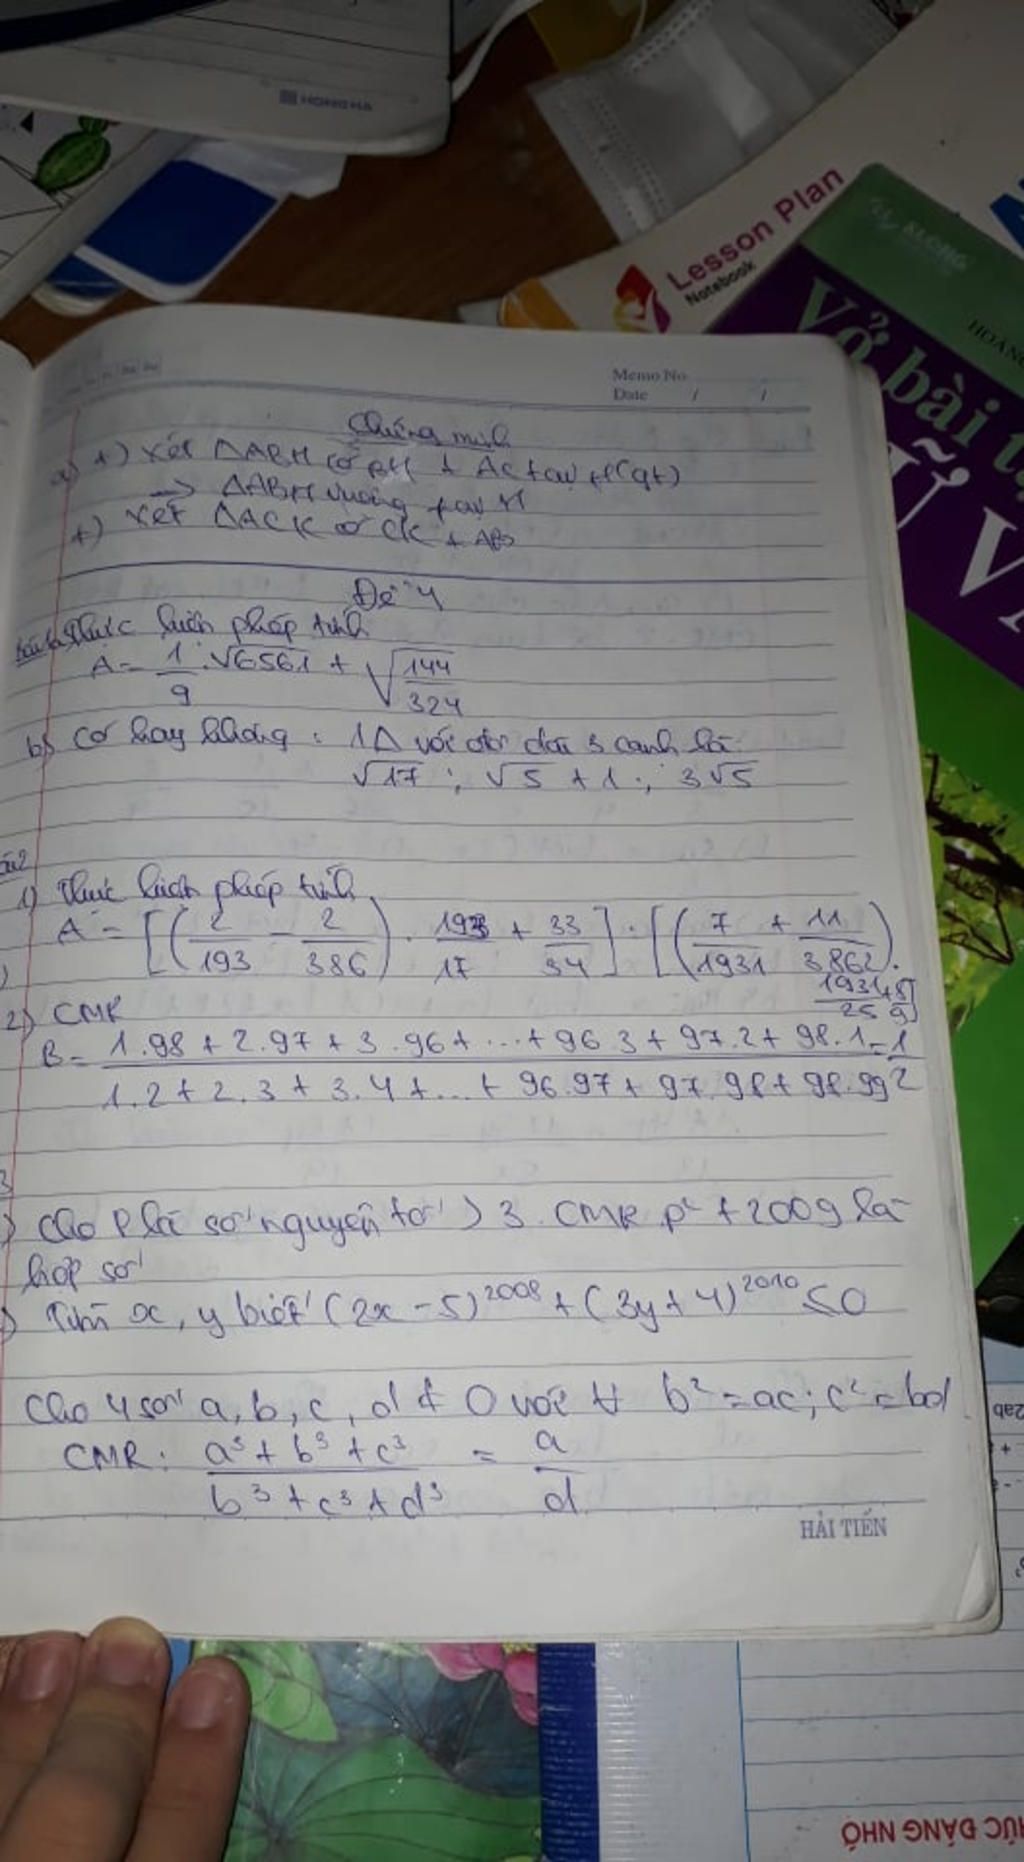 HONG HA
Lesson Plan
Notebook
KLONG
Vở bài
HOÀNG
Memo No
Date / /
Chứng minh
a) +) Xét ΔABH có BH ⊥ AC tại H (gt)
=> ΔABH vuông tại H
+) Xét ΔACK có CK ⊥ AB
Đề 4
thực hiện phép tính
A = 1/9 . √6561 + √(144/324)
b) Có hay không : 1Δ với độ dài 3 cạnh là
√17 ; √5 + 1 ; 3√5
1) Thực hiện phép tính
A = [(2/193 - 2/386) . 193/17 + 33/34] : [(7/1931 + 11/3862) . 1931/25 + 9/2]
2) CMR
B = (1.98 + 2.97 + 3.96 + ... + 96.3 + 97.2 + 98.1)/(1.2 + 2.3 + 3.4 + ... + 96.97 + 97.98 + 98.99) = 1/2
3
) Cho P là số nguyên tố > 3. CMR p² + 2009 là
hợp số
) Tìm x, y biết (2x - 5)²⁰⁰⁸ + (3y + 4)²⁰¹⁰ ≤ 0
Cho 4 số a, b, c, d ≠ 0 với b² = ac ; c² = bd
CMR : (a³ + b³ + c³)/(b³ + c³ + d³) = a/d
HẢI TIẾN
2ab
ÚC ĐẶNG NHỌ